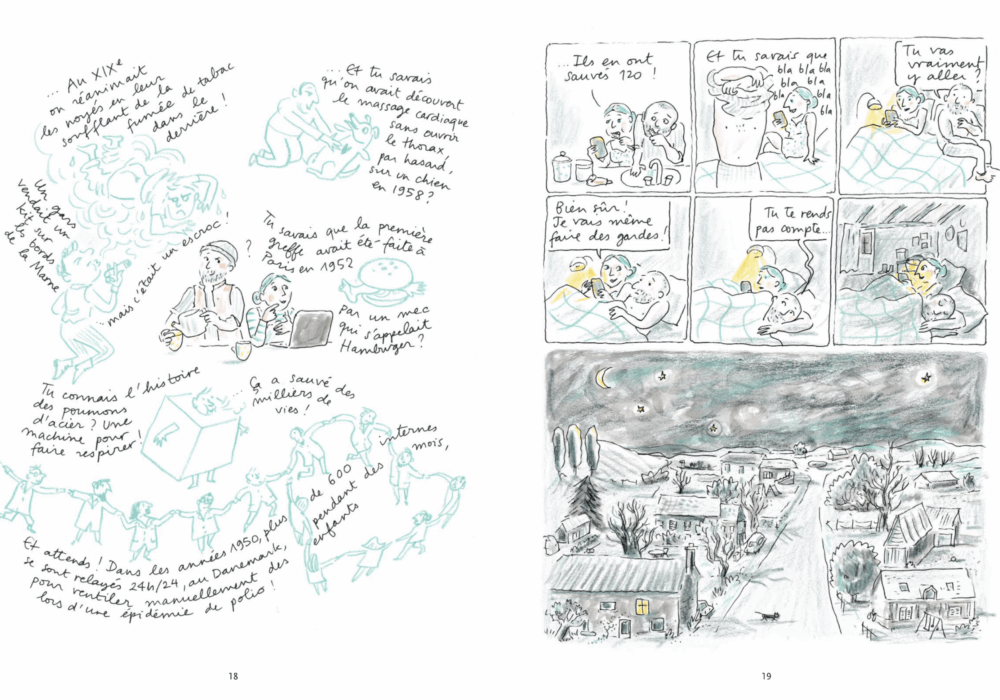 ... Au XIXe
on réanimait
les noyés en leur
soufflant de la
fumée de tabac
dans le
derrière !
Un gars
vendait un
kit sur
les bords
de la Marne
mais c'était un escroc !
... Et tu savais
qu'on avait découvert
le massage cardiaque
sans ouvrir
le thorax,
par hasard,
sur un chien
en 1958 ?
?
Tu savais que la première
greffe avait été faite à
Paris en 1952
par un mec
qui s'appelait
Hamburger ?
Tu connais l'histoire
des poumons
d'acier ? Une
machine pour
faire respirer !
Ça a sauvé des
milliers de
vies !
Et attends ! Dans les années 1950, plus
de 600 internes
se sont relayés 24h/24, au Danemark,
pendant des mois,
pour ventiler manuellement des
enfants
lors d'une épidémie de polio !
18
... Ils en ont
sauvés 120 !
Et tu savais que
bla bla bla
bla bla
bla bla
bla
Tu vas
vraiment
y aller ?
Bien sûr !
Je vais même
faire des gardes !
Tu te rends
pas compte...
19